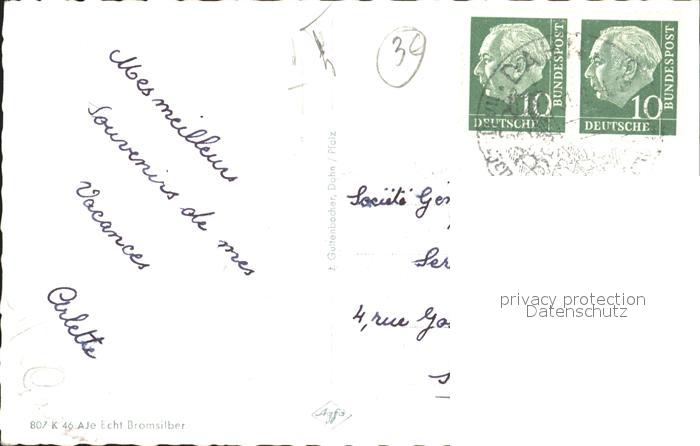 Mes meilleurs
Souvenirs de mes
Vacances
Arlette
39
Société Gé
Ser
4, rue Ga
10
DEUTSCHE
BUNDESPOST
10
DEUTSCHE
BUNDESPOST
privacy protection
Datenschutz
F. Guttenbacher, Dahn / Pfalz
Agfa
807 K 46 AJe Echt Bromsilber